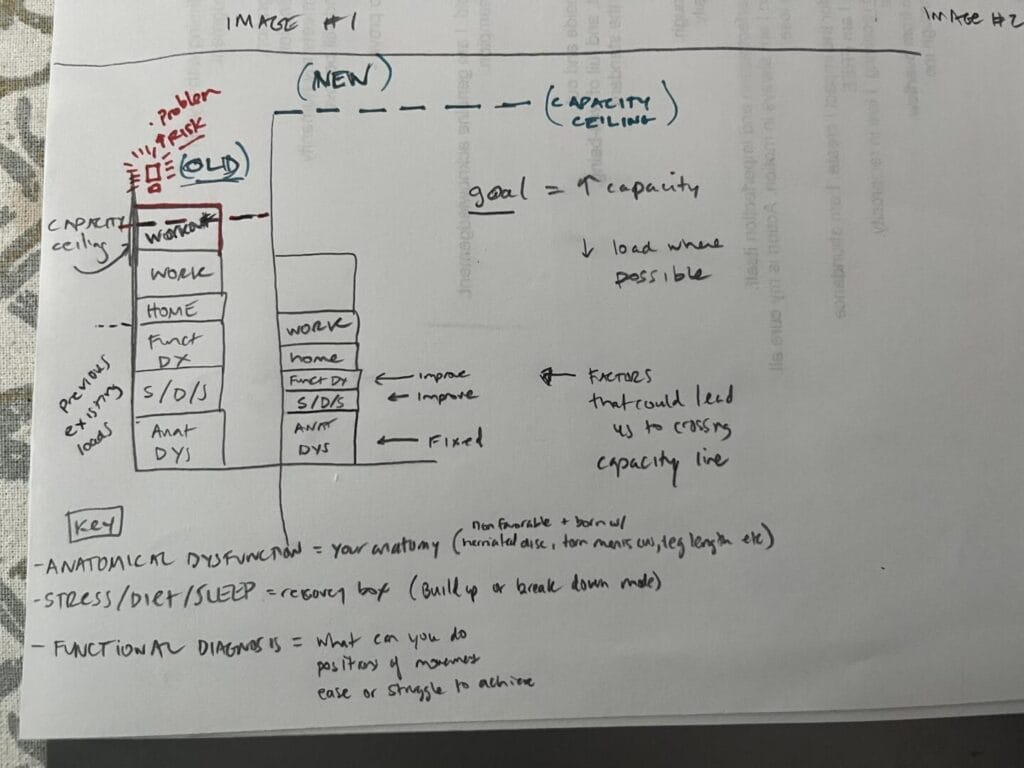 IMAGE #1
IMAGE #2
(NEW)
(CAPACITY
CEILING)
. Problem
↑ RISK
!
(OLD)
goal = ↑ capacity
↓ load where
possible
CAPACITY
ceiling
workout
WORK
HOME
Funct
DX
S/D/S
Anat
DYS
previous
existing
loads
WORK
home
Funct DX
S/D/S
ANAT
DYS
← improve
← Improve
← Fixed
← FACTORS
that could lead
us to crossing
capacity line
Key
non favorable + born w/
- ANATOMICAL DYSFUNCTION = your anatomy (herniated disc, torn meniscus, leg length etc)
- STRESS/Diet/SLEEP = recovery box (Build up or break down mode)
- FUNCTIONAL DIAGNOSIS = what can you do
positions of movement
ease or struggle to achieve